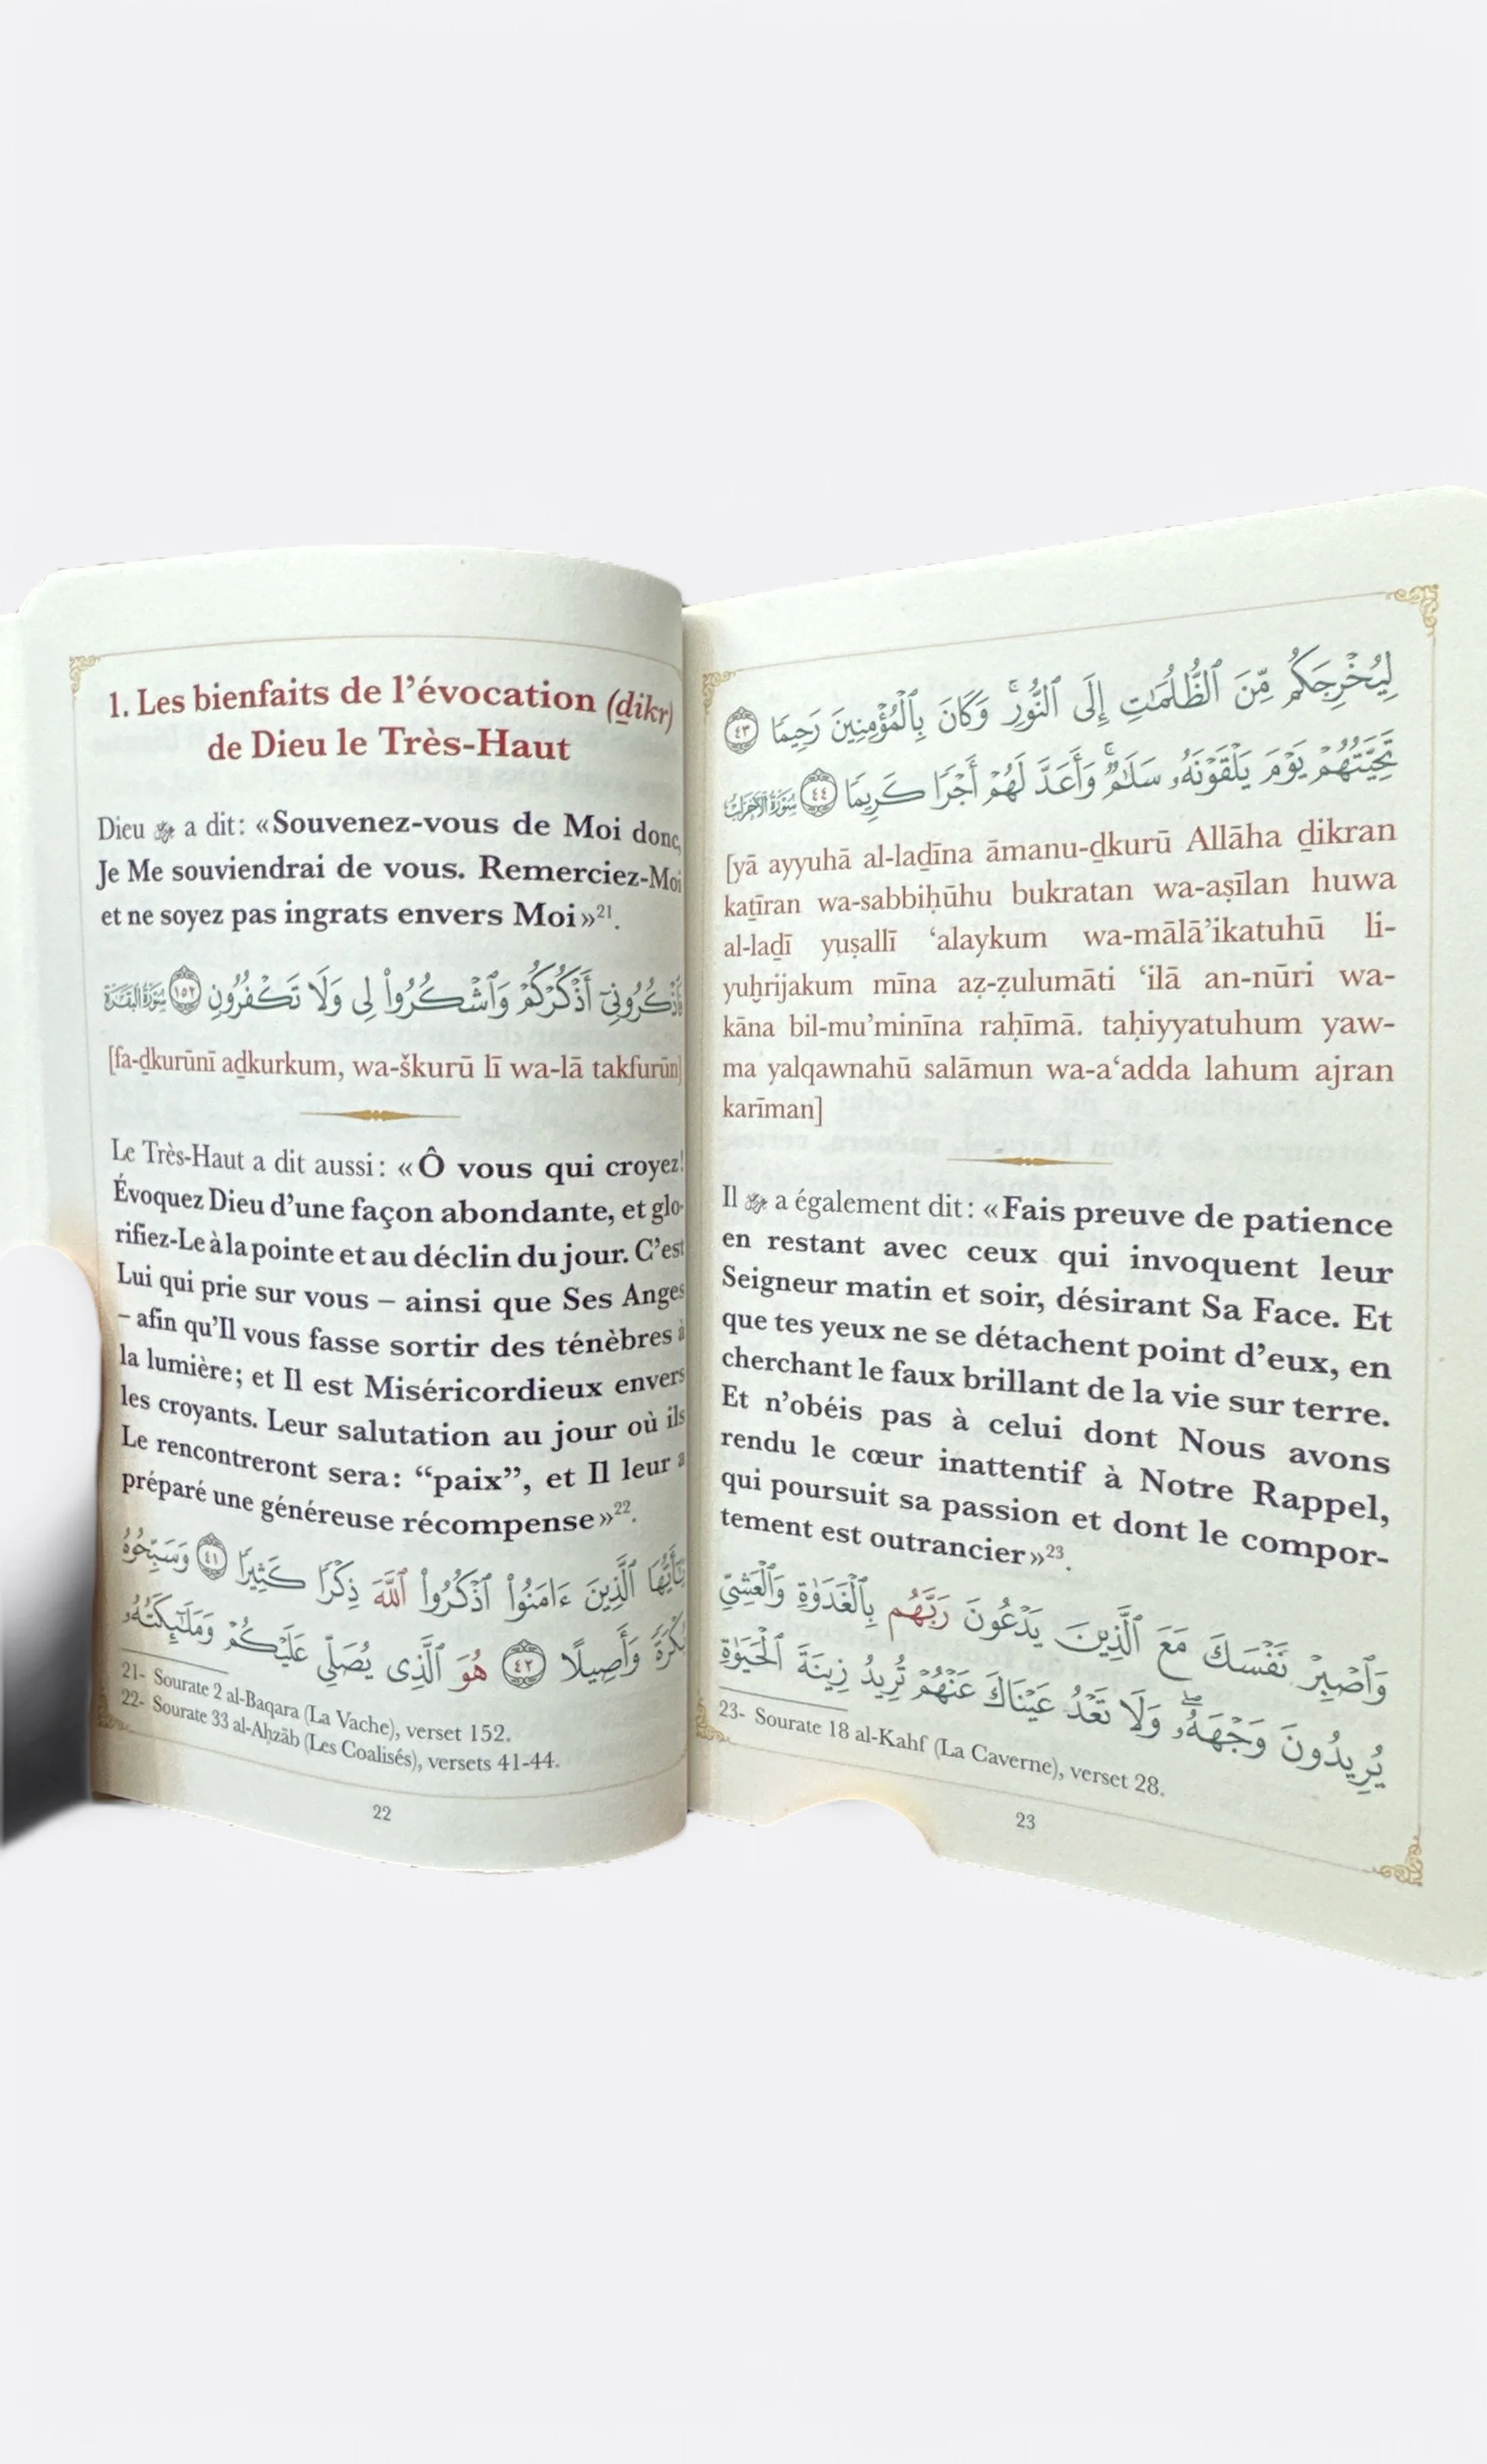 1. Les bienfaits de l’évocation (ḏikr)
de Dieu le Très-Haut
Dieu ﷻ a dit : «Souvenez-vous de Moi donc,
Je Me souviendrai de vous. Remerciez-Moi
et ne soyez pas ingrats envers Moi»21.
أَذْكُرْكُمْ وَٱشْكُرُوا۟ لِى وَلَا تَكْفُرُونِ ١٥٢ سُورَةُ البَقَرَة
[fa-ḏkurūnī aḏkurkum, wa-škurū lī wa-lā takfurūn]
Le Très-Haut a dit aussi : «Ô vous qui croyez!
Évoquez Dieu d’une façon abondante, et glo-
rifiez-Le à la pointe et au déclin du jour. C’est
Lui qui prie sur vous – ainsi que Ses Anges
– afin qu’Il vous fasse sortir des ténèbres à
la lumière; et Il est Miséricordieux envers
les croyants. Leur salutation au jour où ils
Le rencontreront sera: “paix”, et Il leur a
préparé une généreuse récompense»22.
ٱلَّذِينَ ءَامَنُوا۟ ٱذْكُرُوا۟ ٱللَّهَ ذِكْرًا كَثِيرًا ٤١ وَسَبِّحُوهُ
بُكْرَةً وَأَصِيلًا ٤٢ هُوَ ٱلَّذِى يُصَلِّى عَلَيْكُمْ وَمَلَٰٓئِكَتُهُۥ
21- Sourate 2 al-Baqara (La Vache), verset 152.
22- Sourate 33 al-Aḥzāb (Les Coalisés), versets 41-44.
22
لِيُخْرِجَكُم مِّنَ ٱلظُّلُمَٰتِ إِلَى ٱلنُّورِ ۚ وَكَانَ بِٱلْمُؤْمِنِينَ رَحِيمًا ٤٣
تَحِيَّتُهُمْ يَوْمَ يَلْقَوْنَهُۥ سَلَٰمٌ ۚ وَأَعَدَّ لَهُمْ أَجْرًا كَرِيمًا ٤٤ سُورَةُ الأَحْزَاب
[yā ayyuhā al-laḏīna āmanu-ḏkurū Allāha ḏikran
kaṯīran wa-sabbiḥūhu bukratan wa-aṣīlan huwa
al-laḏī yuṣallī ‘alaykum wa-mālā’ikatuhū li-
yuḫrijakum mīna aẓ-ẓulumāti ‘ilā an-nūri wa-
kāna bil-mu’minīna raḥīmā. taḥiyyatuhum yaw-
ma yalqawnahū salāmun wa-a‘adda lahum ajran
karīman]
Il ﷻ a également dit : «Fais preuve de patience
en restant avec ceux qui invoquent leur
Seigneur matin et soir, désirant Sa Face. Et
que tes yeux ne se détachent point d’eux, en
cherchant le faux brillant de la vie sur terre.
Et n’obéis pas à celui dont Nous avons
rendu le cœur inattentif à Notre Rappel,
qui poursuit sa passion et dont le compor-
tement est outrancier»23.
وَٱصْبِرْ نَفْسَكَ مَعَ ٱلَّذِينَ يَدْعُونَ رَبَّهُم بِٱلْغَدَوٰةِ وَٱلْعَشِىِّ
يُرِيدُونَ وَجْهَهُۥ ۖ وَلَا تَعْدُ عَيْنَاكَ عَنْهُمْ تُرِيدُ زِينَةَ ٱلْحَيَوٰةِ
23- Sourate 18 al-Kahf (La Caverne), verset 28.
23